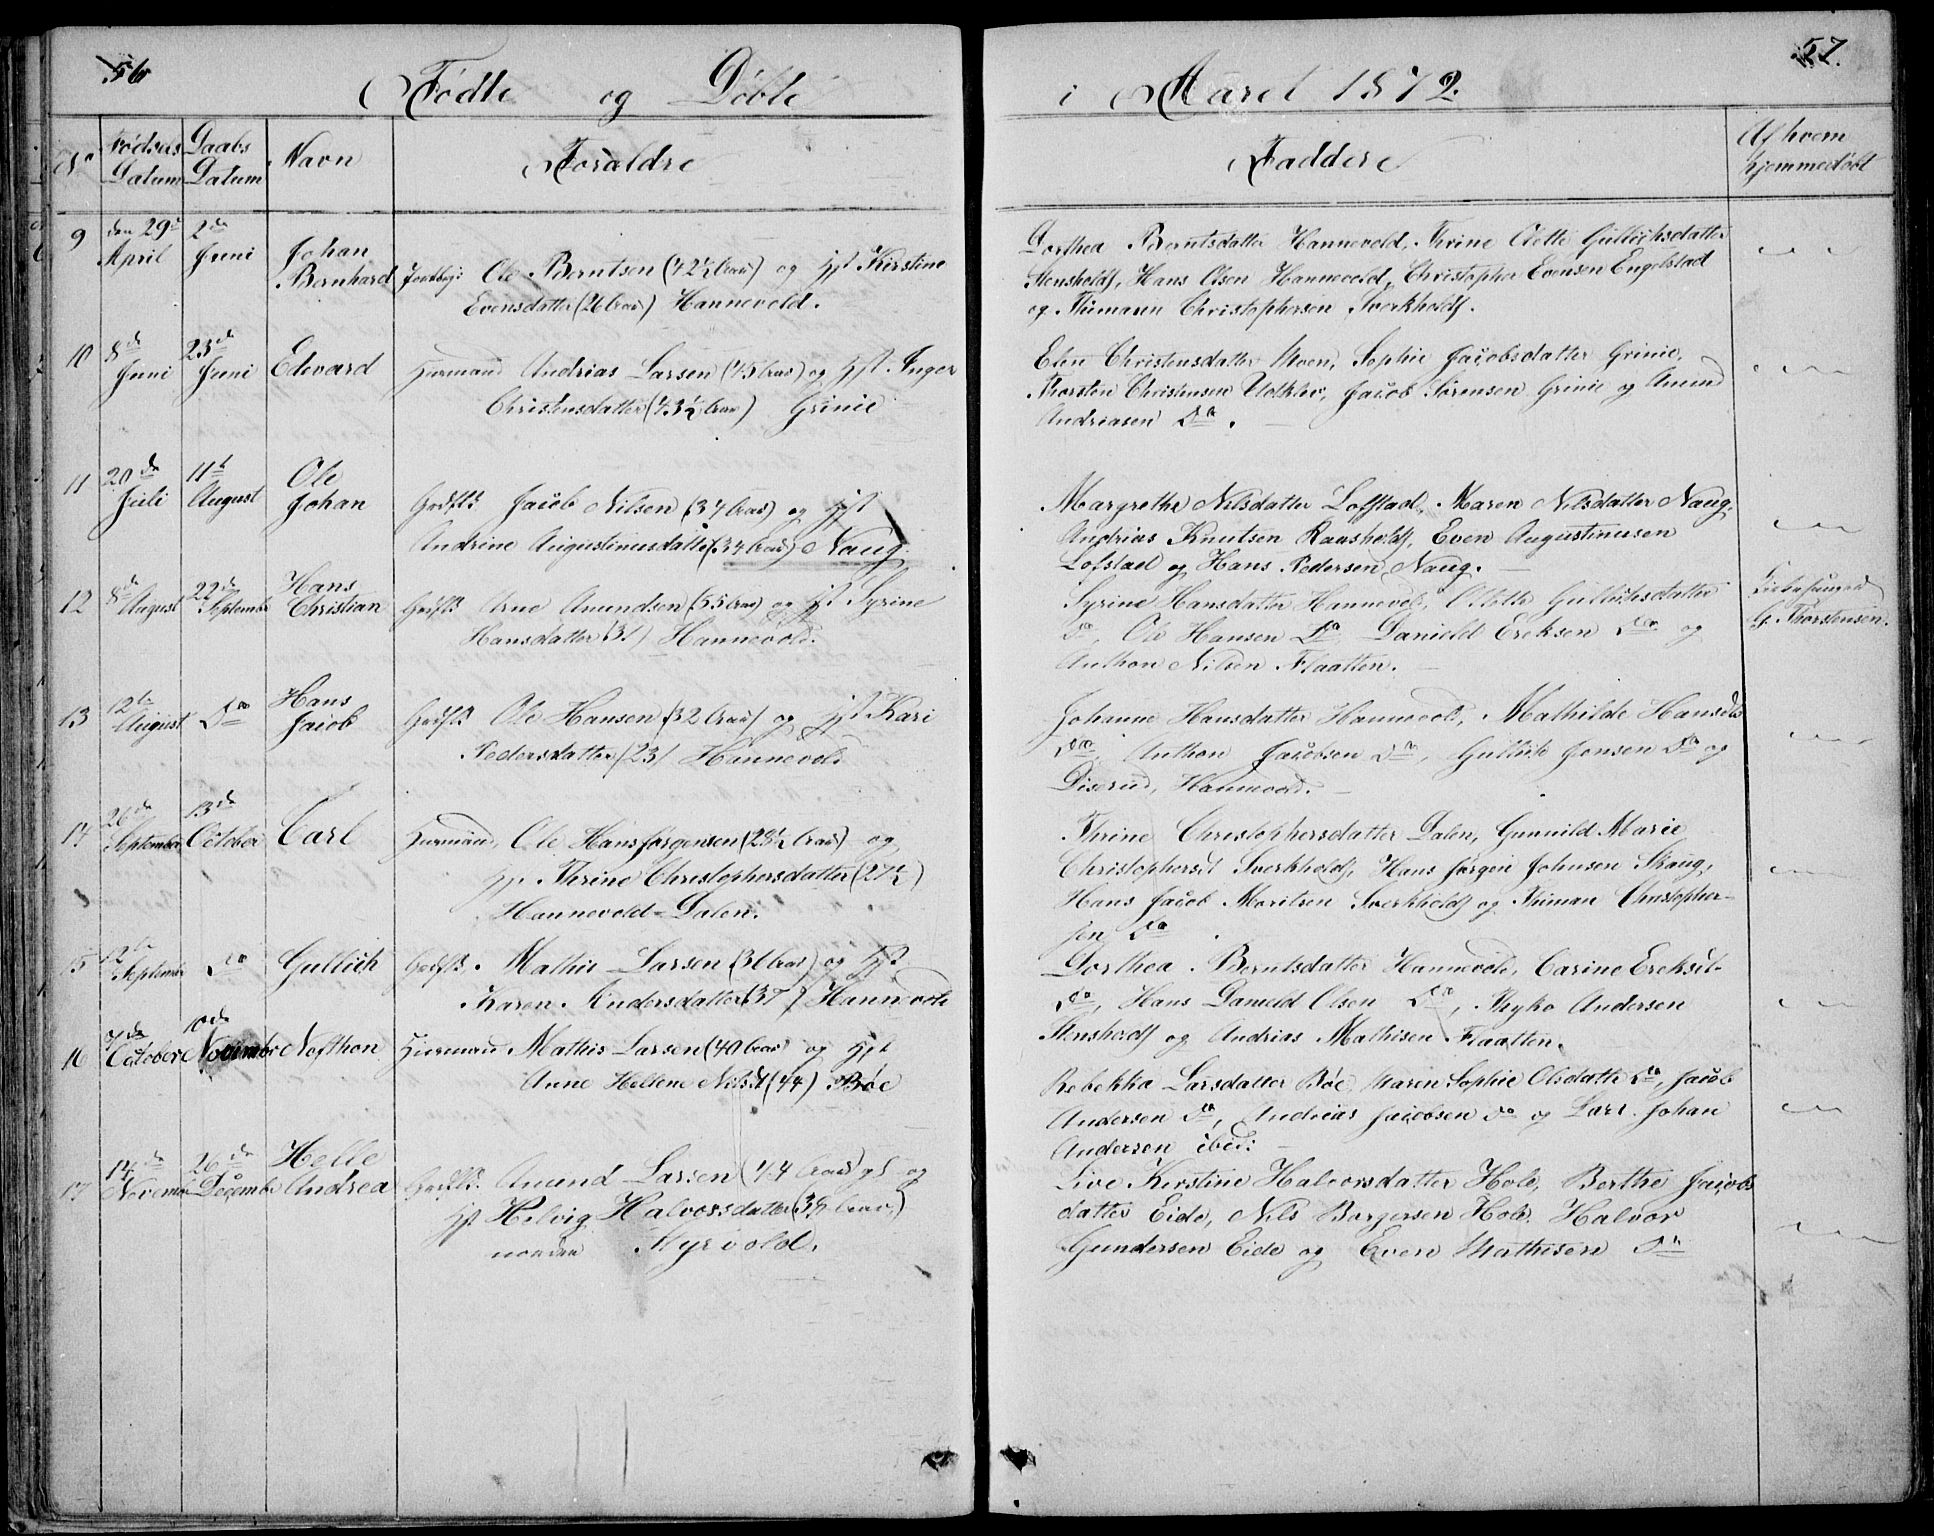 56
Fødte og Døbte
i Aaret 1872.
57.
No
Fødsels Datum
Daabs Datum
Navn
Forældre
Faddere
Af hvem hjemmedøbt
9
den 29de April
2de Juni
Johan Bernhard
Ole Berntsen (42½ Aar) og Hst Kirstine
Evensdatter (26 Aar) Hannevold.
Dorthea Berntsdatter Hannevold, Thrine Olette Gulliksdatter
Stensholdt, Hans Olsen Hannevold, Christopher Evensen Engelstad
og Thimann Christophersen Sverkholdt.
10
8de Juni
23de Juni
Edvard
Huusmand Andrias Larsen (45 Aar) og Hst. Inger
Christensdatter (43½ Aar) Grinie
Elen Christensdatter Moen, Sophie Jacobsdatter Grinie,
Thorsten Christensen Udklev, Jacob Sørensen Grinie og Anund
Andriasen Do.
11
20de Juli
11te August
Ole Johan
Grdfst. Jacob Nilsen (37 Aar) og Hst
Andrine Augustinusdatter (34 Aar) Naug.
Margrethe Nilsdatter Lofstad, Maren Nilsdatter Naug,
Andrias Knutsen Raasholdt, Even Augustinusen
Lofstad og Hans Pedersen Naug.
12
8de August
22de Septembr
Hans Christian
Grdfst. Arne Anundsen (35 Aar) og Hst Syrine
Hansdatter (31) Hannevold.
Syrine Hansdatter Hannevold, Olette Gulliksdatter
Do, Ole Hansen Do Danield Ereksen Do og
Anthon Nilsen Flaatten.
G. Thorstensen.
13
12te August
Do
Hans Jacob
Grdfst. Ole Hansen (32 Aar) og Hst Kari
Pedersdatter (23) Hannevold
Johanne Hansdatter Hannevold, Mathilde Hansdtr
Do Anthon Jacobsen Do, Gullik Jensen Do og
Diserud, Hannevold.
14
26de September
13de October
Carl
Huusmand, Ole Hansjørgensen (28½ Aar) og
Hst Thrine Christophersdatter (27½)
Hannevold-Dalen.
Thrine Christophersdatter Dalen, Gunnild Marie
Christophersdt Sverkholdt, Hans Jørgen Johnsen Skaug,
Hans Jacob Moritsen Sverkholdt og Thiman Christopher-
sen Do
15
12te Septembr
Do
Gullich
Grdfst. Mathis Larsen (31 Aar) og Hst
Karen Andersdatter (37) Hannevold
Dorthea Berntsdatter Hannevold, Carine Ereksdt-
Do, Hans Danield Olsen Do, Thyko Andersen
Stensholdt og Andrias Mathisen Flaatten.
16
7de October
10de Novembr
Nefthon
Huusmand Mathis Larsen (40 Aar) og Hst
Anne Hellene Nilsdt (44) Bøe
Rebekka Larsdatter Bøe, Maren Sophie Olsdatter Do, Jacob
Andersen Do, Andreas Jacobsen Do og Lars Johan
Andersen ibid:
17
14de Novembr
26de Decembr
Helle Andrea
Grdfst. Anund Larsen (44 Aar) og
Hst Helvig Halvorsdatter (39 Aar)
nordre Myrvold.
Live Kirstine Halvorsdatter Hole, Berthe Jacobs
datter Eide, Nils Borgersen Hole, Halvor
Gundersen Eide og Even Mathisen Do